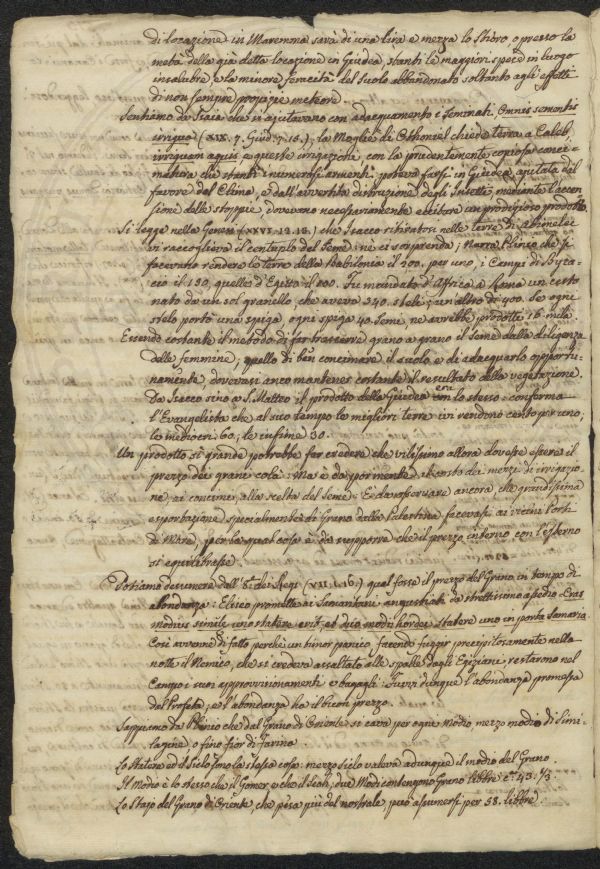 di locazione in Maremma sarà di una lira e mezza lo Stioro, o presso la
metà della già detta locazione in Giudea, stanti le maggiori spese in luogo
insalubre e la minore feracità del Suolo abbandonato soltanto agli effetti
di non sempre propizie meteore.
Sentiamo da Isaia che si ajutavano con adaequamento i Seminati. Omnis sementis
irriguo (XIX. 7. Giud. 7. 15.), la Moglie di Othoniel chiede terra a Caleb,
irriguam aquis e queste irrigazioni, con la prudentemente copiosa conci-
matura che stanti i numerosi armenti poteva farsi in Giudea, ajutata dal
favore del Clima, e dall'avvertita distruzione degli Insetti mediante l'accen-
sione delle stoppie, dovevano necessariamente esibire un prodigioso prodotto.
Si legge nella Genesi (XXVI. 12. 13.) che Isacco ritiratosi nelle terre di Abimelec
vi raccoglieva il centuplo del Seme: nè ci sorprenda; Narra Plinio che si
facevano rendere le terre della Babilonia il 200. per uno, i Campi di Byza-
cio il 150, quelle d'Egitto il 100. Fu mandato d'Affrica a Roma un cesto
nato da un sol granello, che aveva 340. steli; un altro di 400. Se ogni
stelo porta una spiga ogni spiga 40. semi, ne avrebbe prodotti 16. mila.
Essendo costante il metodo di far trascerre grano a grano il seme dalla diligenza
delle femmine; quello di ben concimare il suolo e di adaequarlo opportu-
namente, dovevasi anco mantener costante il resultato della vegetazione.
Da Isacco sino a S. Matteo il prodotto della Giudea era lo stesso: conferma
l'Evangelista che al suo tempo le migliori terre ivi rendono cento per uno;
le mediocri 60; le infime 30.
Un prodotto sì grande potrebbe far credere che vilissimo allora dovesse essere il
prezzo dei grani colà: Ma è da por mente al costo dei mezzi di irrigazio
ne, ai concimi, alla scelta del seme. È da osservare ancora, che grandissima
esportazione specialmente di Grano dalla Palestina facevasi ai vicini Porti
di Mare, per la qual cosa è da supporre che il prezzo interno con l'esterno
si equilibrasse.
Potiamo desumere dall' de' Regi (VII. 1. 16.) qual fosse il prezzo del Grano in tempo di
abondanza: Eliseo promette ai Samaritani, angustiati da strettissimo assedio: Eras
Modius similae uno statere erit, et duo modii hordei Statere uno in porta Samariae
Così avvenne di fatto perchè un timor panico, facendo fuggir precipitosamente nella
notte il Nemico, che si credeva assaltato alle spalle dagli Egiziani, restarono nel
Campo i suoi approvvisionamenti e bagagli: Fuvvi dunque l'abondanza promessa
dal Profeta; e l'abondanza ha il buon prezzo.
Sappiamo da Plinio che dal Grano di Oriente si cava per ogni Modio mezzo modio di Simi-
lagine o fino fior di farina.
Lo Statere ed il Siclo sono la stessa cosa: mezzo siclo valeva adunque il modio del Grano.
Il Modio è lo stesso che il Gomer, e che il Seah; due Modi contengono Grano libbre c.e 43. 1/3
Lo stajo del Grano di Oriente, che pesa più del nostrale può assumersi per 58. libbre.